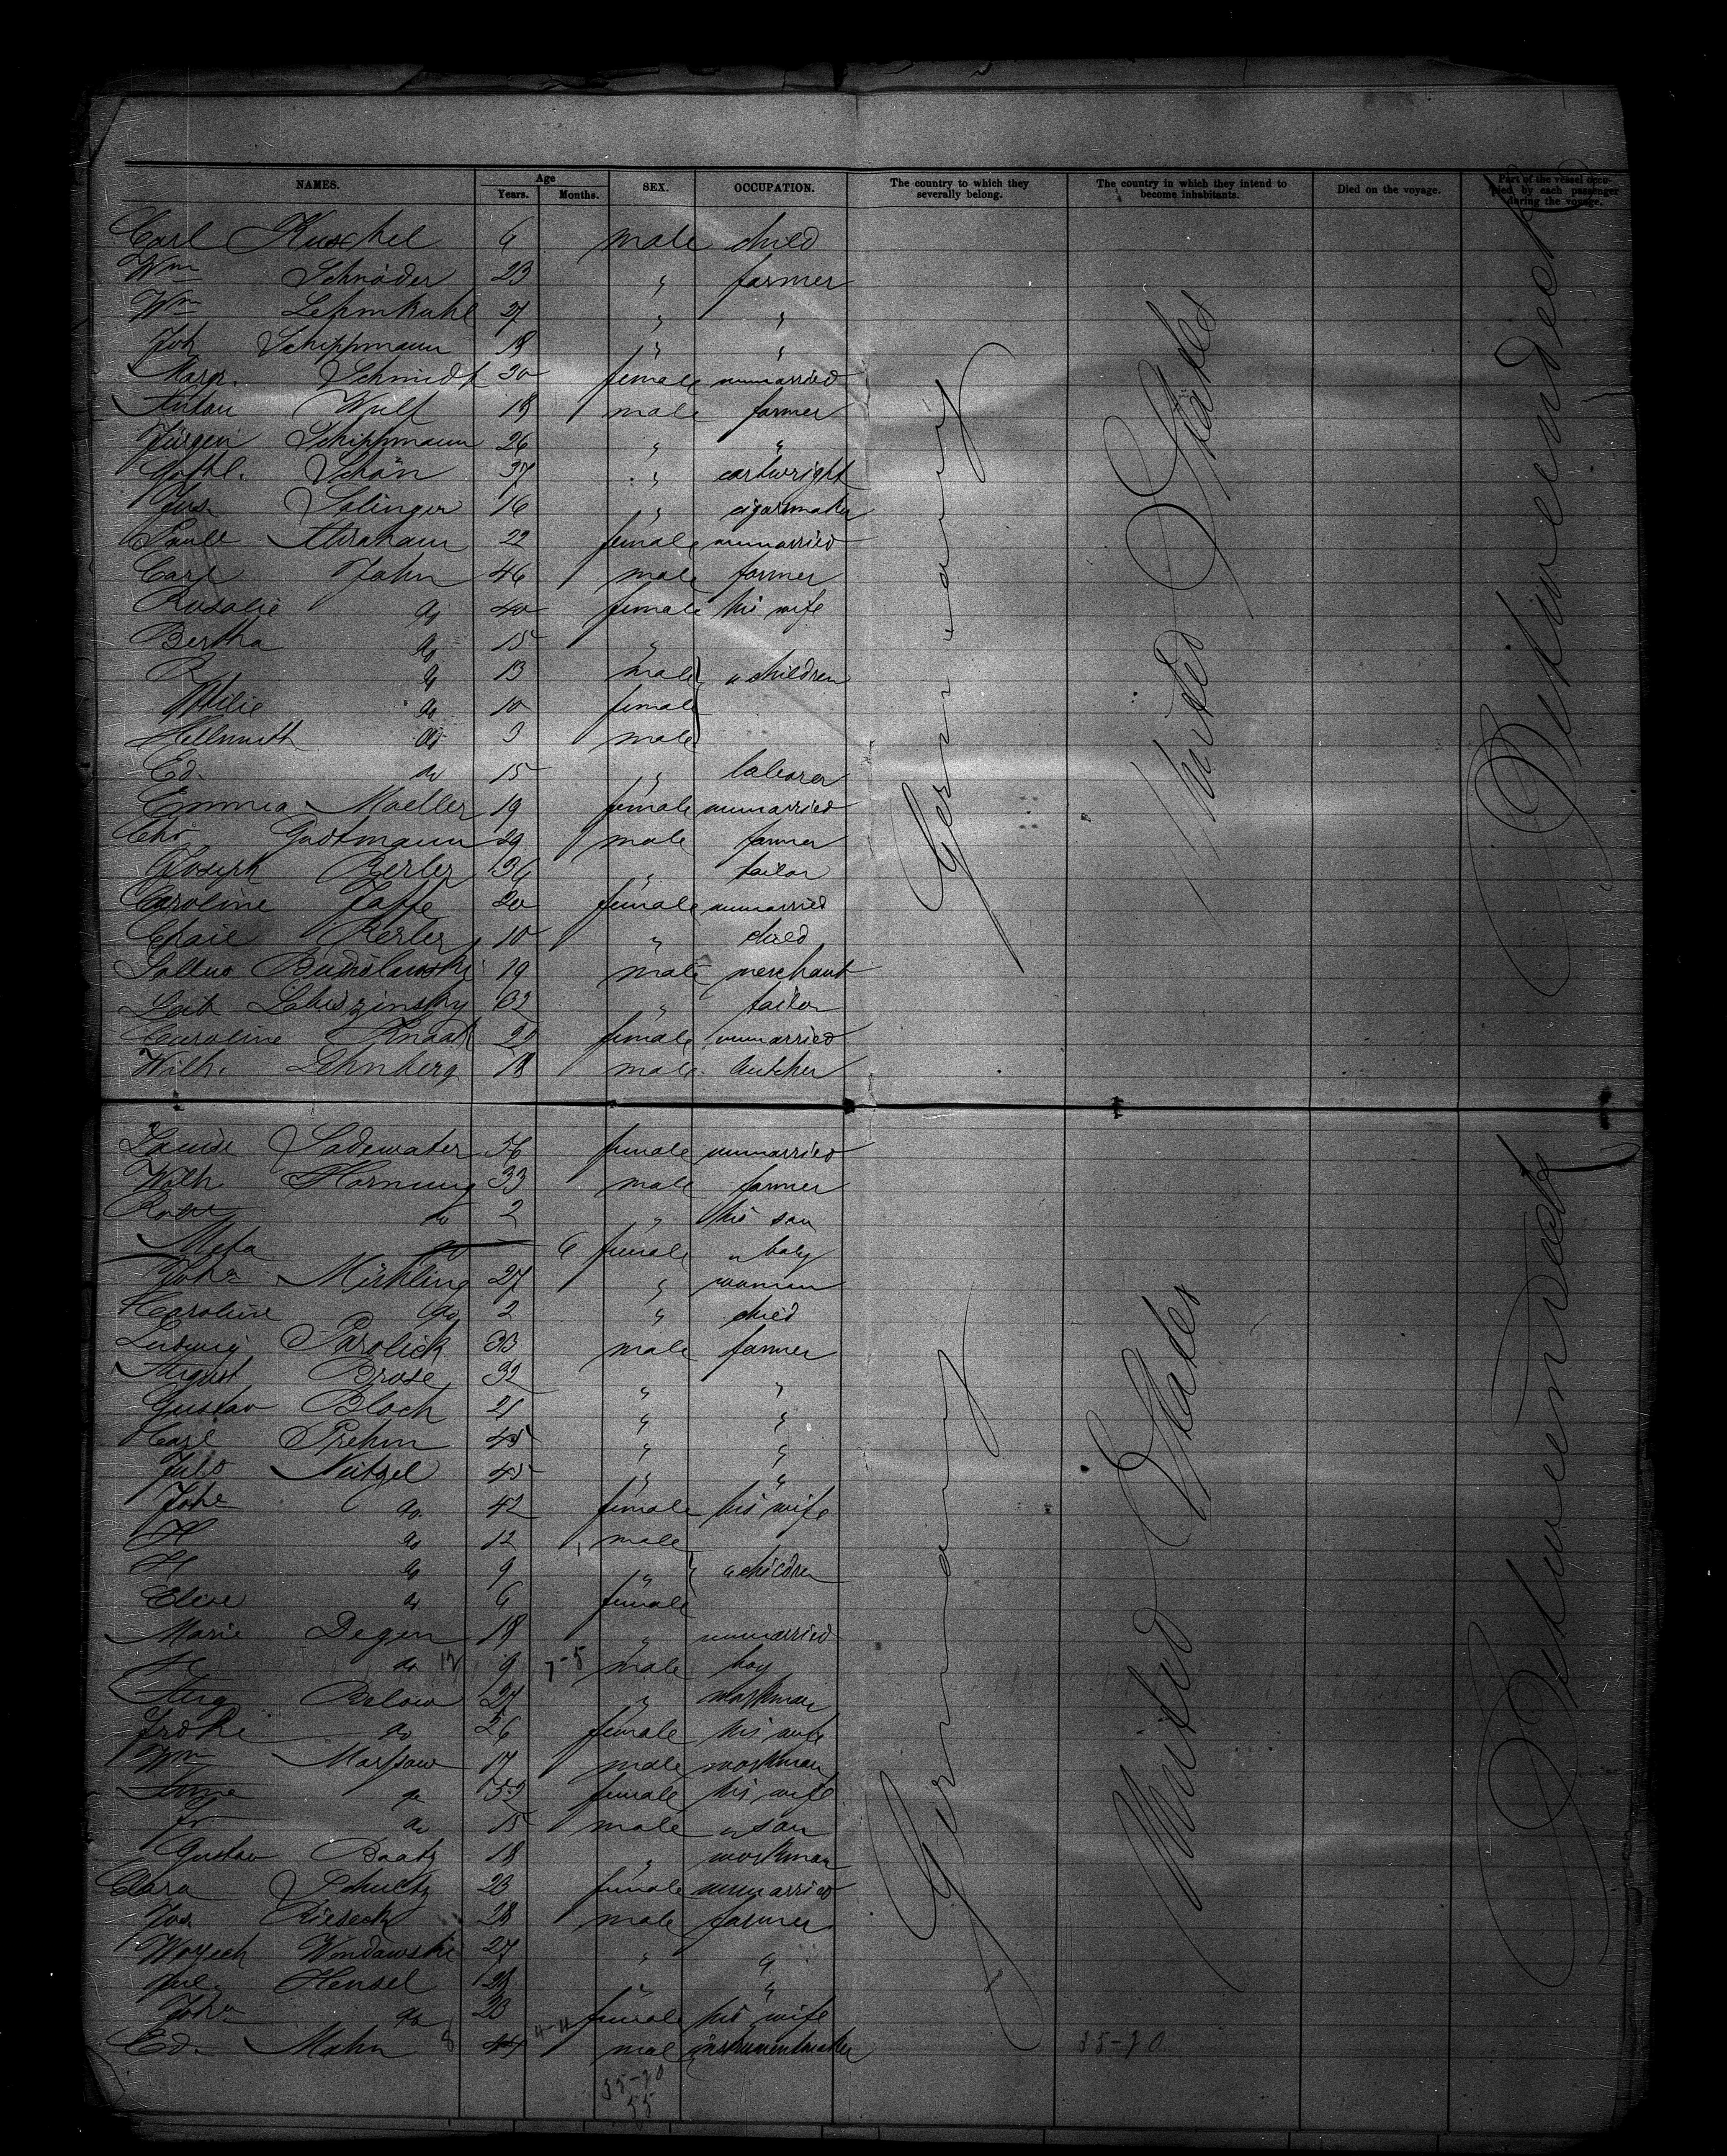 NAMES. Age Years. Months. SEX. OCCUPATION. The country to which they severally belong. The country in which they intend to become inhabitants. Died on the voyage. Part of the vessel occupied by each passenger during the voyage.
Carl Kuschel 6 male child
Wm Schröder 23 " farmer
Wm Lehmkuhl 27 " "
Joh Schippmann 18 " "
Margr. Schmidt 30 female unmarried
Anton Wulf 18 male farmer
Jürgen Schippmann 26 " "
Gottl. Schön 37 " cartwright
Salinger 16 " cigarmaker
Abraham 22 female unmarried
Carl Jahn 46 male farmer
Rosalie do 40 female his wife
Bertha do 15 "
R do 13 male " children
Ottilie do 10 female
Hellmuth do 3 male
Ed. do 15 " laborer
Emma Moeller 19 female unmarried
Chr Gustmann 29 male farmer
Joseph Berler 36 " tailor
Caroline Jaffe 20 female unmarried
Berler 10 " child
19 male merchant
Leib 32 " tailor
Caroline Knaak female unmarried
Wilh. Lehnberg 18 male butcher
Germany
United States
Between deck
Louise Sadewater female unmarried
Wilh Hornung 33 male farmer
do 2 " his son
Meta do 6 female " baby
Johe 27 " woman
Caroline do 2 " child
Ludwig Parolick 33 male farmer
August Brose 32 " "
Gustav Bloch 21 " "
Carl Prehm 45 " "
Juls Neitzel 45 " "
Johe do 42 female his wife
H do 12 male
H do 9 " " children
Elise do 6 female
Marie Degen 18 " unmarried
do 12 9 7-5 male boy
Aug Below 27 " workman
do 26 female his wife
Wm male workman
Anne do 52 female his wife
Fr. do 15 male " son
Gustav Baatz 18 " workman
Clara Schultz 23 female unmarried
Jos Rieseck 28 male farmer
Woyech Wondawski 27 " "
Jul. Hensel 28 " "
Joha do 23 female his wife
Ed. Mahn 8 44 4-11 male instrumentmaker
Germany
United States
Between deck
35-20
35-20
55